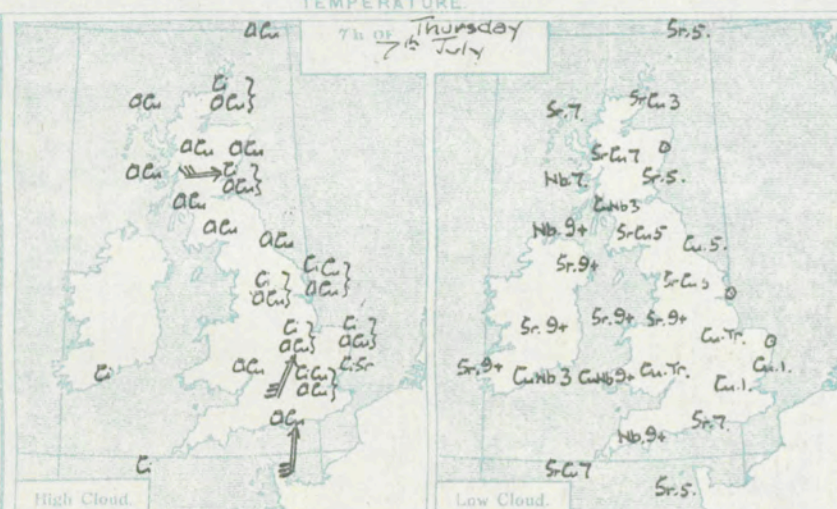 TEMPERATURE.
7h OF Thursday
7th July
ACu
Ci }
ACu }
ACu
ACu ACu
ACu
Ci }
ACu }
ACu
ACu
ACu
CiCu }
ACu }
Ci }
ACu }
Ci }
ACu }
Ci }
ACu }
CiSr
Ci
ACu
CiCu }
ACu }
ACu
Ci
High Cloud.
Sr.5.
SrCu 3
Sr.7.
SrCu7
0
Nb.7.
Sr.5.
CuNb3
Nb.9+
SrCu5
Cu.5.
Sr.9+
0
Sr.9+
Sr.9+
Sr.9+
Cu.Tr.
0
Sr.9+
CuNb3
CuNb9+
Cu.Tr.
Cu.1.
Cu.1.
Nb.9+
Sr.7.
SrCu7
Sr.5.
Low Cloud.